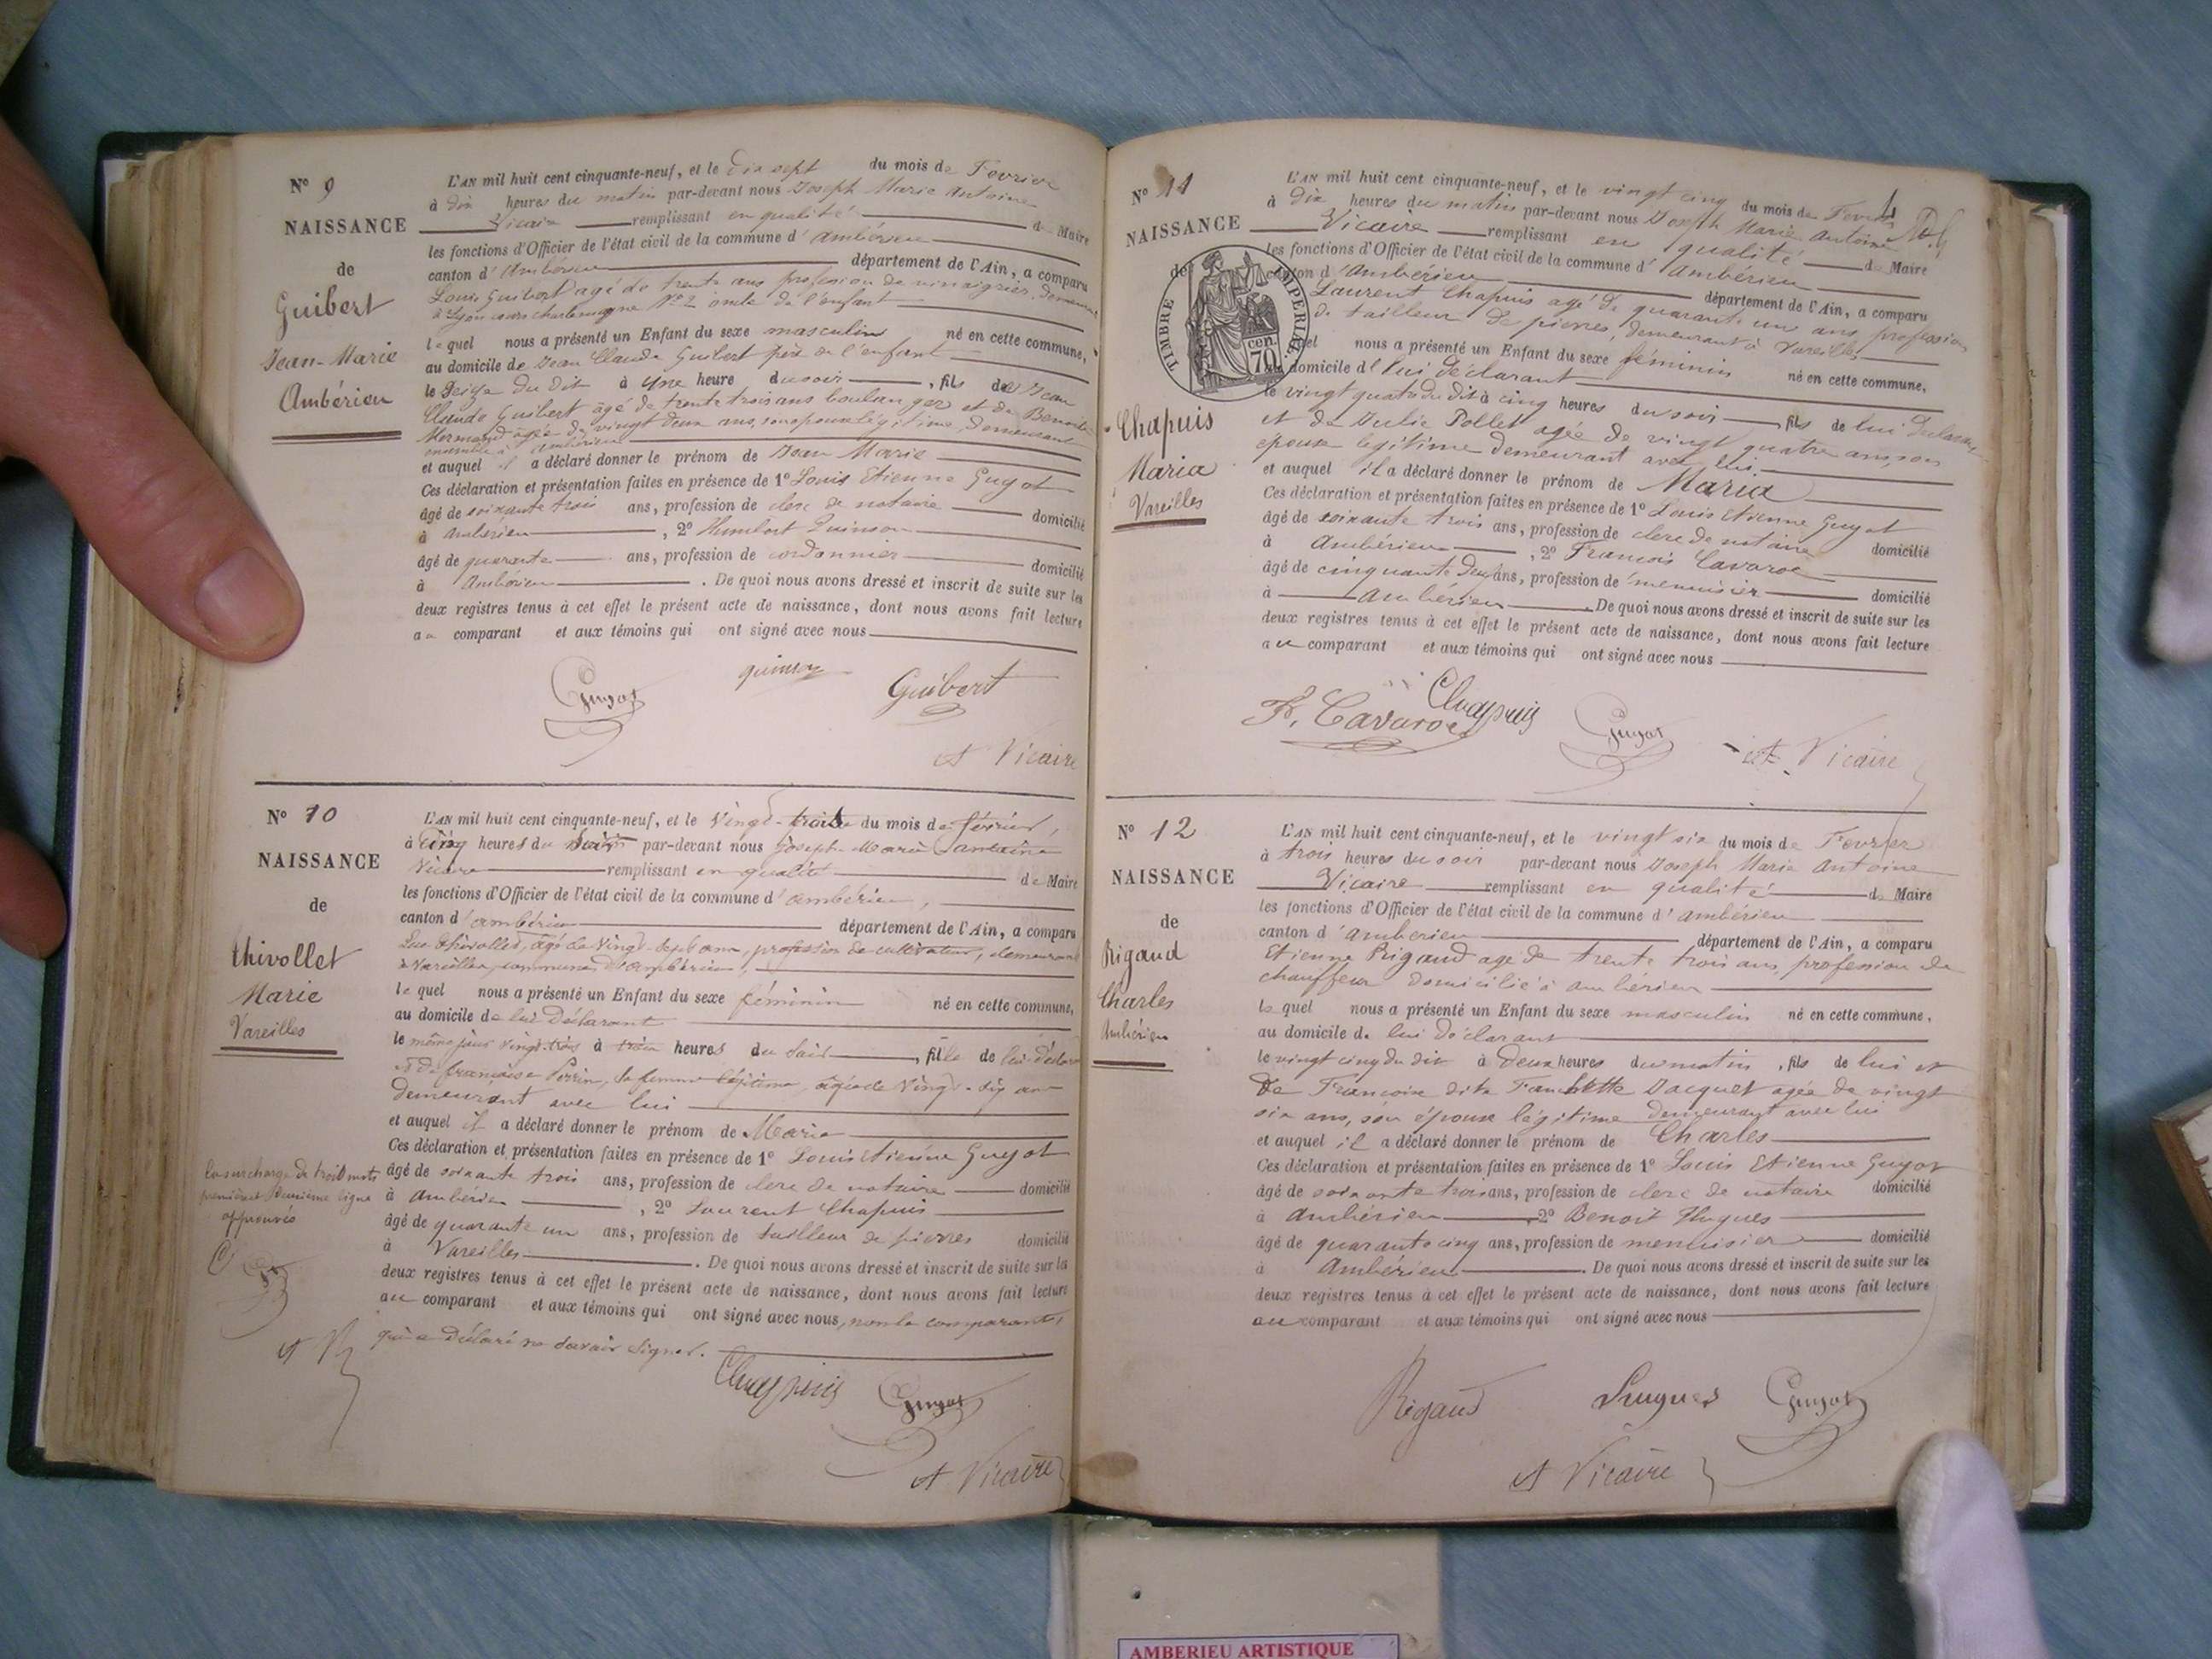 N° 9
NAISSANCE
de
Guibert
Jean-Marie
Ambérieu
L'AN mil huit cent cinquante-neuf, et le Dix sept du mois de Fevrier
à dix heures du matin par-devant nous Joseph Marie Antoine
Vicaire remplissant en qualité de Maire
les fonctions d'Officier de l'état civil de la commune d'Ambérieu
canton d'Ambérieu département de l'Ain, a comparu
Louis Guibert agé de trente ans profession de vinaigrier, demeurant
à Lyon cours charlemagne N° 2 oncle de l'enfant
lequel nous a présenté un Enfant du sexe masculin né en cette commune,
au domicile de Jean Claude Guibert père de l'enfant
le Seize du dit à Une heure du soir, fils de Jean
Claude Guibert âgé de trente trois ans boulanger et de Benoite
Mermand agée de vingt deux ans, son epouse légitime, demeurant
ensemble à Ambérieu
et auquel il a déclaré donner le prénom de Jean Marie
Ces déclaration et présentation faites en présence de 1° Louis Etienne Guyot
âgé de soixante trois ans, profession de clerc de notaire domicilié
à Ambérieu, 2° Humbert Quinson
âgé de quarante ans, profession de cordonnier domicilié
à Ambérieu. De quoi nous avons dressé et inscrit de suite sur les
deux registres tenus à cet effet le présent acte de naissance, dont nous avons fait lecture
au comparant et aux témoins qui ont signé avec nous
Guyot quinson Guibert
A Vicaire
N° 10
NAISSANCE
de
thivollet
Marie
Vareilles
L'AN mil huit cent cinquante-neuf, et le Vingt-trois du mois de février,
à Cinq heures du Soir par-devant nous Joseph Marie Antoine
Vicaire remplissant en qualité de Maire
les fonctions d'Officier de l'état civil de la commune d'ambérieu,
canton d'ambérieu département de l'Ain, a comparu
Luc thivollet, âgé de Vingt-sept ans, profession de cultivateur, demeurant
à Vareilles, commune d'ambérieu,
lequel nous a présenté un Enfant du sexe féminin né en cette commune,
au domicile de lui Déclarant
le même jour vingt-trois à trois heures du Soir, fille de lui déclarant
et de françoise Perrin, sa femme légitime, agée de Vingt-six ans
demeurant avec lui
et auquel il a déclaré donner le prénom de Marie
Ces déclaration et présentation faites en présence de 1° Louis Etienne Guyot
âgé de soixante trois ans, profession de clerc de notaire domicilié
à Ambérieu, 2° Laurent Chapuis
âgé de quarante un ans, profession de tailleur de pierres domicilié
à Vareilles. De quoi nous avons dressé et inscrit de suite sur les
deux registres tenus à cet effet le présent acte de naissance, dont nous avons fait lecture
au comparant et aux témoins qui ont signé avec nous, non le comparant,
qui a déclaré ne savoir signer.
la surcharge de trois mots
première deuxième ligne
approuvés
A V
Chapuis Guyot
A Vicaire
N° 11
NAISSANCE
de
TIMBRE IMPERIAL.
70 cen.
Chapuis
Maria
Vareilles
L'AN mil huit cent cinquante-neuf, et le vingt cinq du mois de Fevrier
à Dix heures du matin par-devant nous Joseph Marie Antoine
Vicaire remplissant en qualité de Maire
les fonctions d'Officier de l'état civil de la commune d'Ambérieu
canton d'Ambérieu département de l'Ain, a comparu
Laurent Chapuis agé de quarante un ans profession
de tailleur de pierres, demeurant à Vareilles
lequel nous a présenté un Enfant du sexe féminin né en cette commune,
au domicile de lui déclarant
le vingt quatre du dit à cinq heures du soir fils de lui Déclarant
et de Julie Pollet agée de vingt quatre ans, son
epouse legitime demeurant avec lui
et auquel il a déclaré donner le prénom de Maria
Ces déclaration et présentation faites en présence de 1° Louis Etienne Guyot
âgé de soixante trois ans, profession de clerc de notaire domicilié
à Ambérieu, 2° François Cavaroc
âgé de cinquante deux ans, profession de menuisier domicilié
à Ambérieu. De quoi nous avons dressé et inscrit de suite sur les
deux registres tenus à cet effet le présent acte de naissance, dont nous avons fait lecture
au comparant et aux témoins qui ont signé avec nous
F. Cavaroc Chapuis Guyot
A Vicaire
N° 12
NAISSANCE
de
Rigaud
Charles
Ambérieu
L'AN mil huit cent cinquante-neuf, et le vingt six du mois de Fevrier
à trois heures du soir par-devant nous Joseph Marie Antoine
Vicaire remplissant en qualité de Maire
les fonctions d'Officier de l'état civil de la commune d'ambérieu
canton d'Amberieu département de l'Ain, a comparu
Etienne Rigaud agé de trente trois ans, profession de
chauffeur domicilié à ambérieu
lequel nous a présenté un Enfant du sexe masculin né en cette commune,
au domicile de lui déclarant
le vingt cinq du dit à Deux heures du matin, fils de lui et
de Françoise dite Fanchette Jacquet agée de vingt
six ans, son épouse légitime demeurant avec lui
et auquel il a déclaré donner le prénom de Charles
Ces déclaration et présentation faites en présence de 1° Louis Etienne Guyot
âgé de soixante trois ans, profession de clerc de notaire domicilié
à Ambérieu 2° Benoit Hugues
âgé de quarante cinq ans, profession de menuisier domicilié
à Ambérieu. De quoi nous avons dressé et inscrit de suite sur les
deux registres tenus à cet effet le présent acte de naissance, dont nous avons fait lecture
au comparant et aux témoins qui ont signé avec nous
Rigaud hugues Guyot
A Vicaire
AMBERIEU ARTISTIQUE